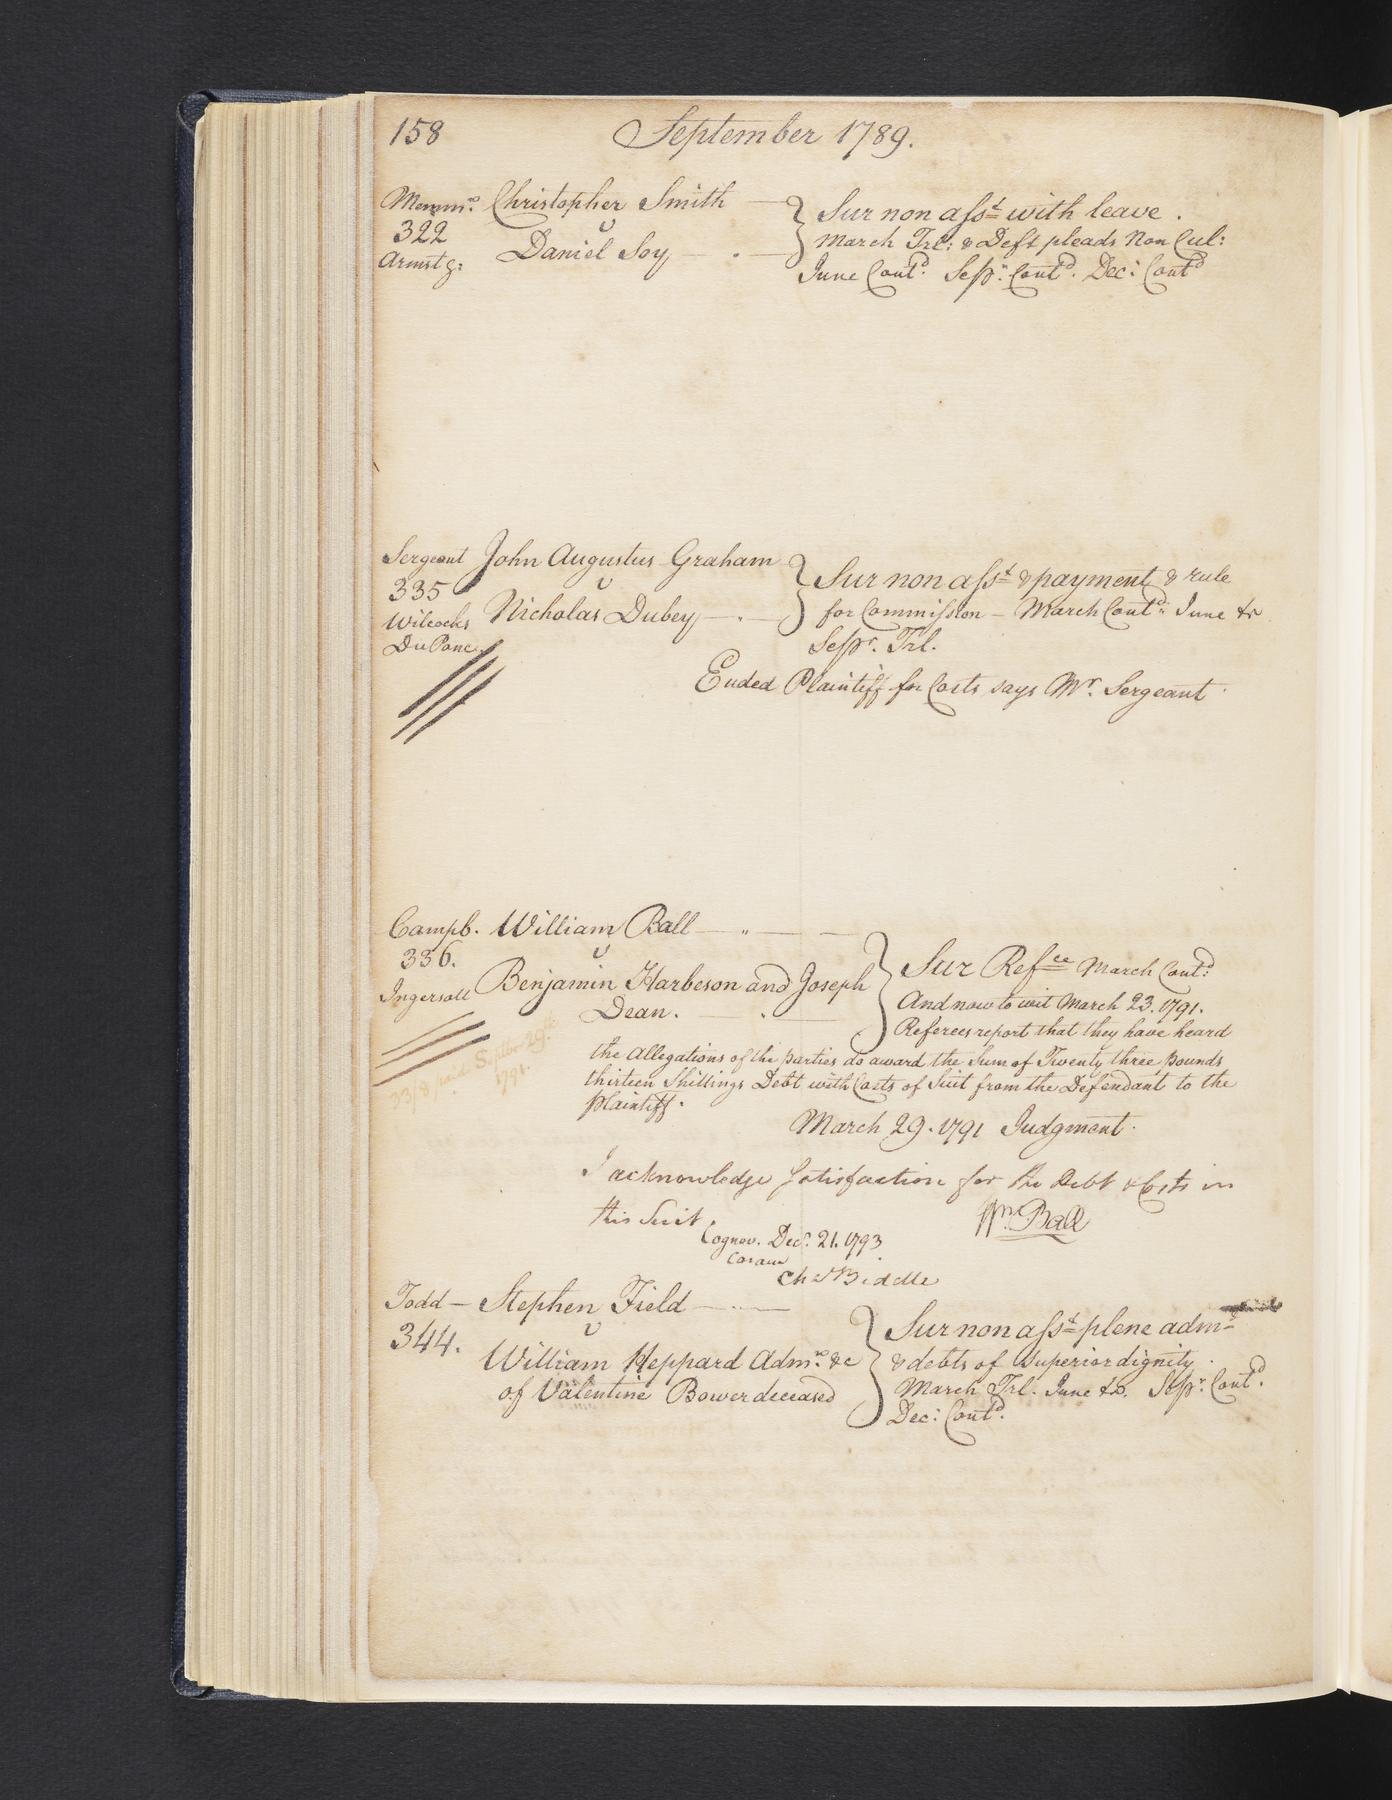 158 September 1789.
Christopher Smith
322 v
Armstg: Daniel Soy
Sur non asst with leave.
March Trl: & Deft pleads Non Cul:
June Contd. Sepr. Contd. Dec: Contd
Sergeant John Augustus Graham
335 v
Wilcocks Nicholas Dubey
DuPonc.
Sur non asst & payment & rule
for Commission – March Contd: June &c
Sepr. Trl.
Ended Plaintiff for Costs says Mr. Sergeant
Campb. William Ball
336. v
Ingersoll Benjamin Harbeson and Joseph
Dean.
33/8 paid Septbr 29th
1791.
Sur Refce March Contd:
And now to wit March 23. 1791.
Referees report that they have heard
the Allegations of the parties do award the Sum of Twenty three Pounds
thirteen Shillings Debt with Costs of Suit from the Defendant to the
Plaintiff.
March 29. 1791 Judgment.
I acknowledge Satisfaction for the Debt & Costs in
this Suit.
Wm. Ball
Cognov. Decr. 21. 1793
Coram
Chs Biddle
Todd – Stephen Field
344. v
William Heppard Admr. &c
of Valentine Bower deceased
Sur non asst plene admt
& debts of Superior dignity.
March Trl. June &c. Sepr. Contd.
Dec: Contd.